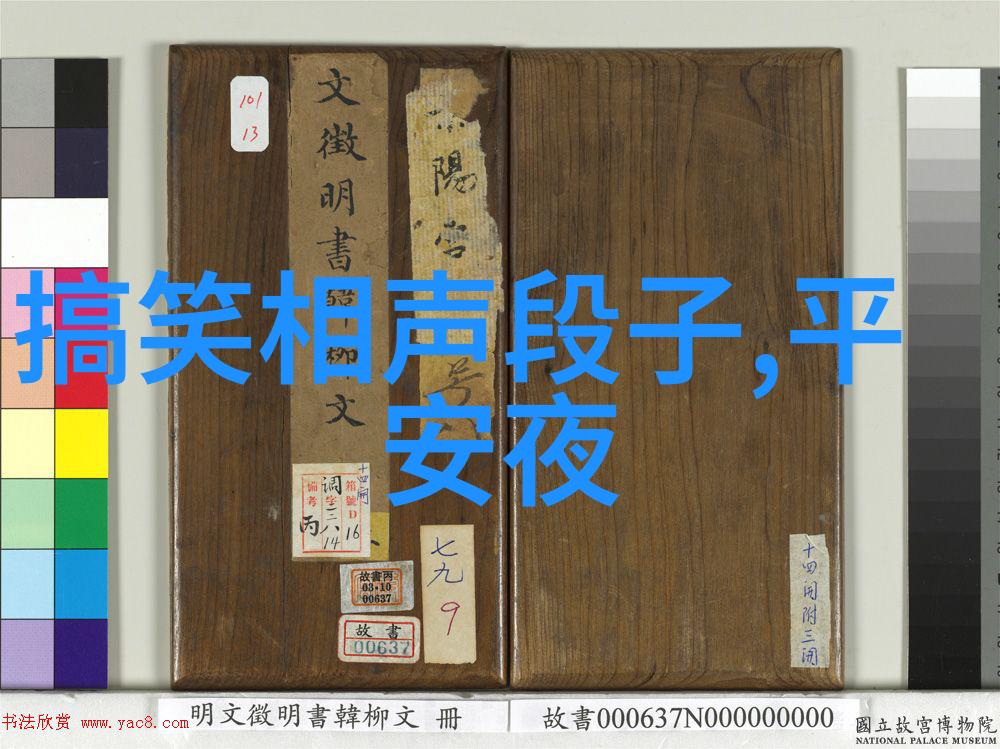 搞笑相声段子,平
安夜
101
13
文徵明書韓柳文
陽宮
号
十四開
箱號D
16
调字三
八
14
備考
丙
故書丙
03·10
00637
故書
00637
七九
9
十四開附三開
明文徵明書韓柳文 冊
故書000637N000000000
書法欣赏 www.yac8.com
國立故宮博物院
NATIONAL PALACE MUSEUM